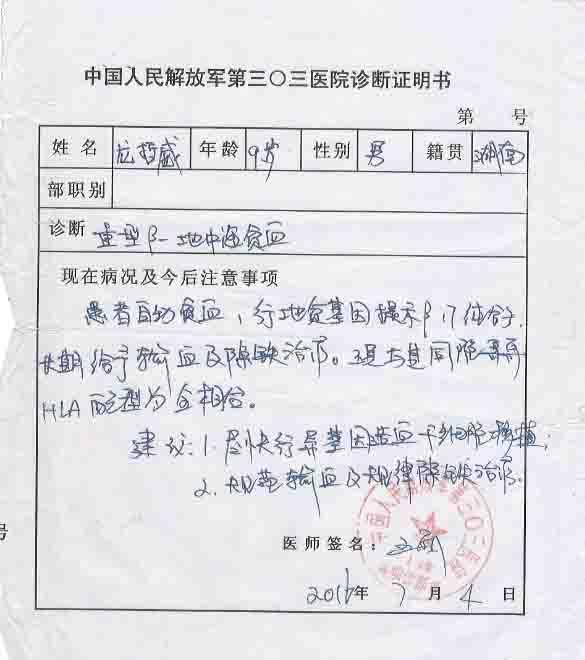 中国人民解放军第三〇三医院诊断证明书
第 号
姓名 龙哲威 年龄 9岁 性别 男 籍贯 湖南
部职别
诊断 重型β-地中海贫血
现在病况及今后注意事项
患者自幼贫血，行地贫基因提示β17纯合子，
长期给予输血及除铁治疗。现与其同胞哥哥
HLA配型为全相合。
建议：1.尽快行异基因造血干细胞移植；
2.规范输血及规律除铁治疗。
号
医师签名：
2016年7月4日